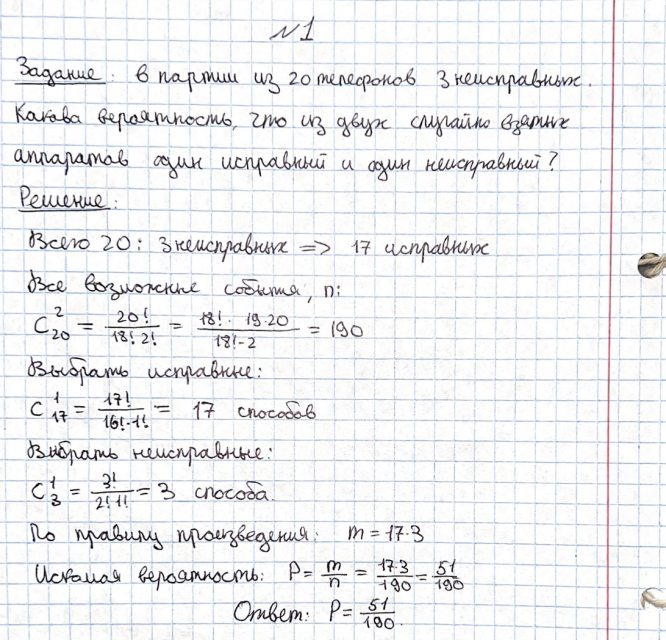 №1
Задание: в партии из 20 телефонов 3 неисправных.
Какова вероятность, что из двух случайно взятых
аппаратов один исправный и один неисправный?
Решение:
Всего 20: 3 неисправных => 17 исправных
Все возможные события, n:
C₂₀² = 20!/(18! 2!) = (18! · 19·20)/(18!·2) = 190
Выбрать исправные:
C₁₇¹ = 17!/(16!·1!) = 17 способов
Выбрать неисправные:
C₃¹ = 3!/(2! 1!) = 3 способа.
По правилу произведения: m = 17·3
Искомая вероятность: P = m/n = 17·3/190 = 51/190
Ответ: P = 51/190.